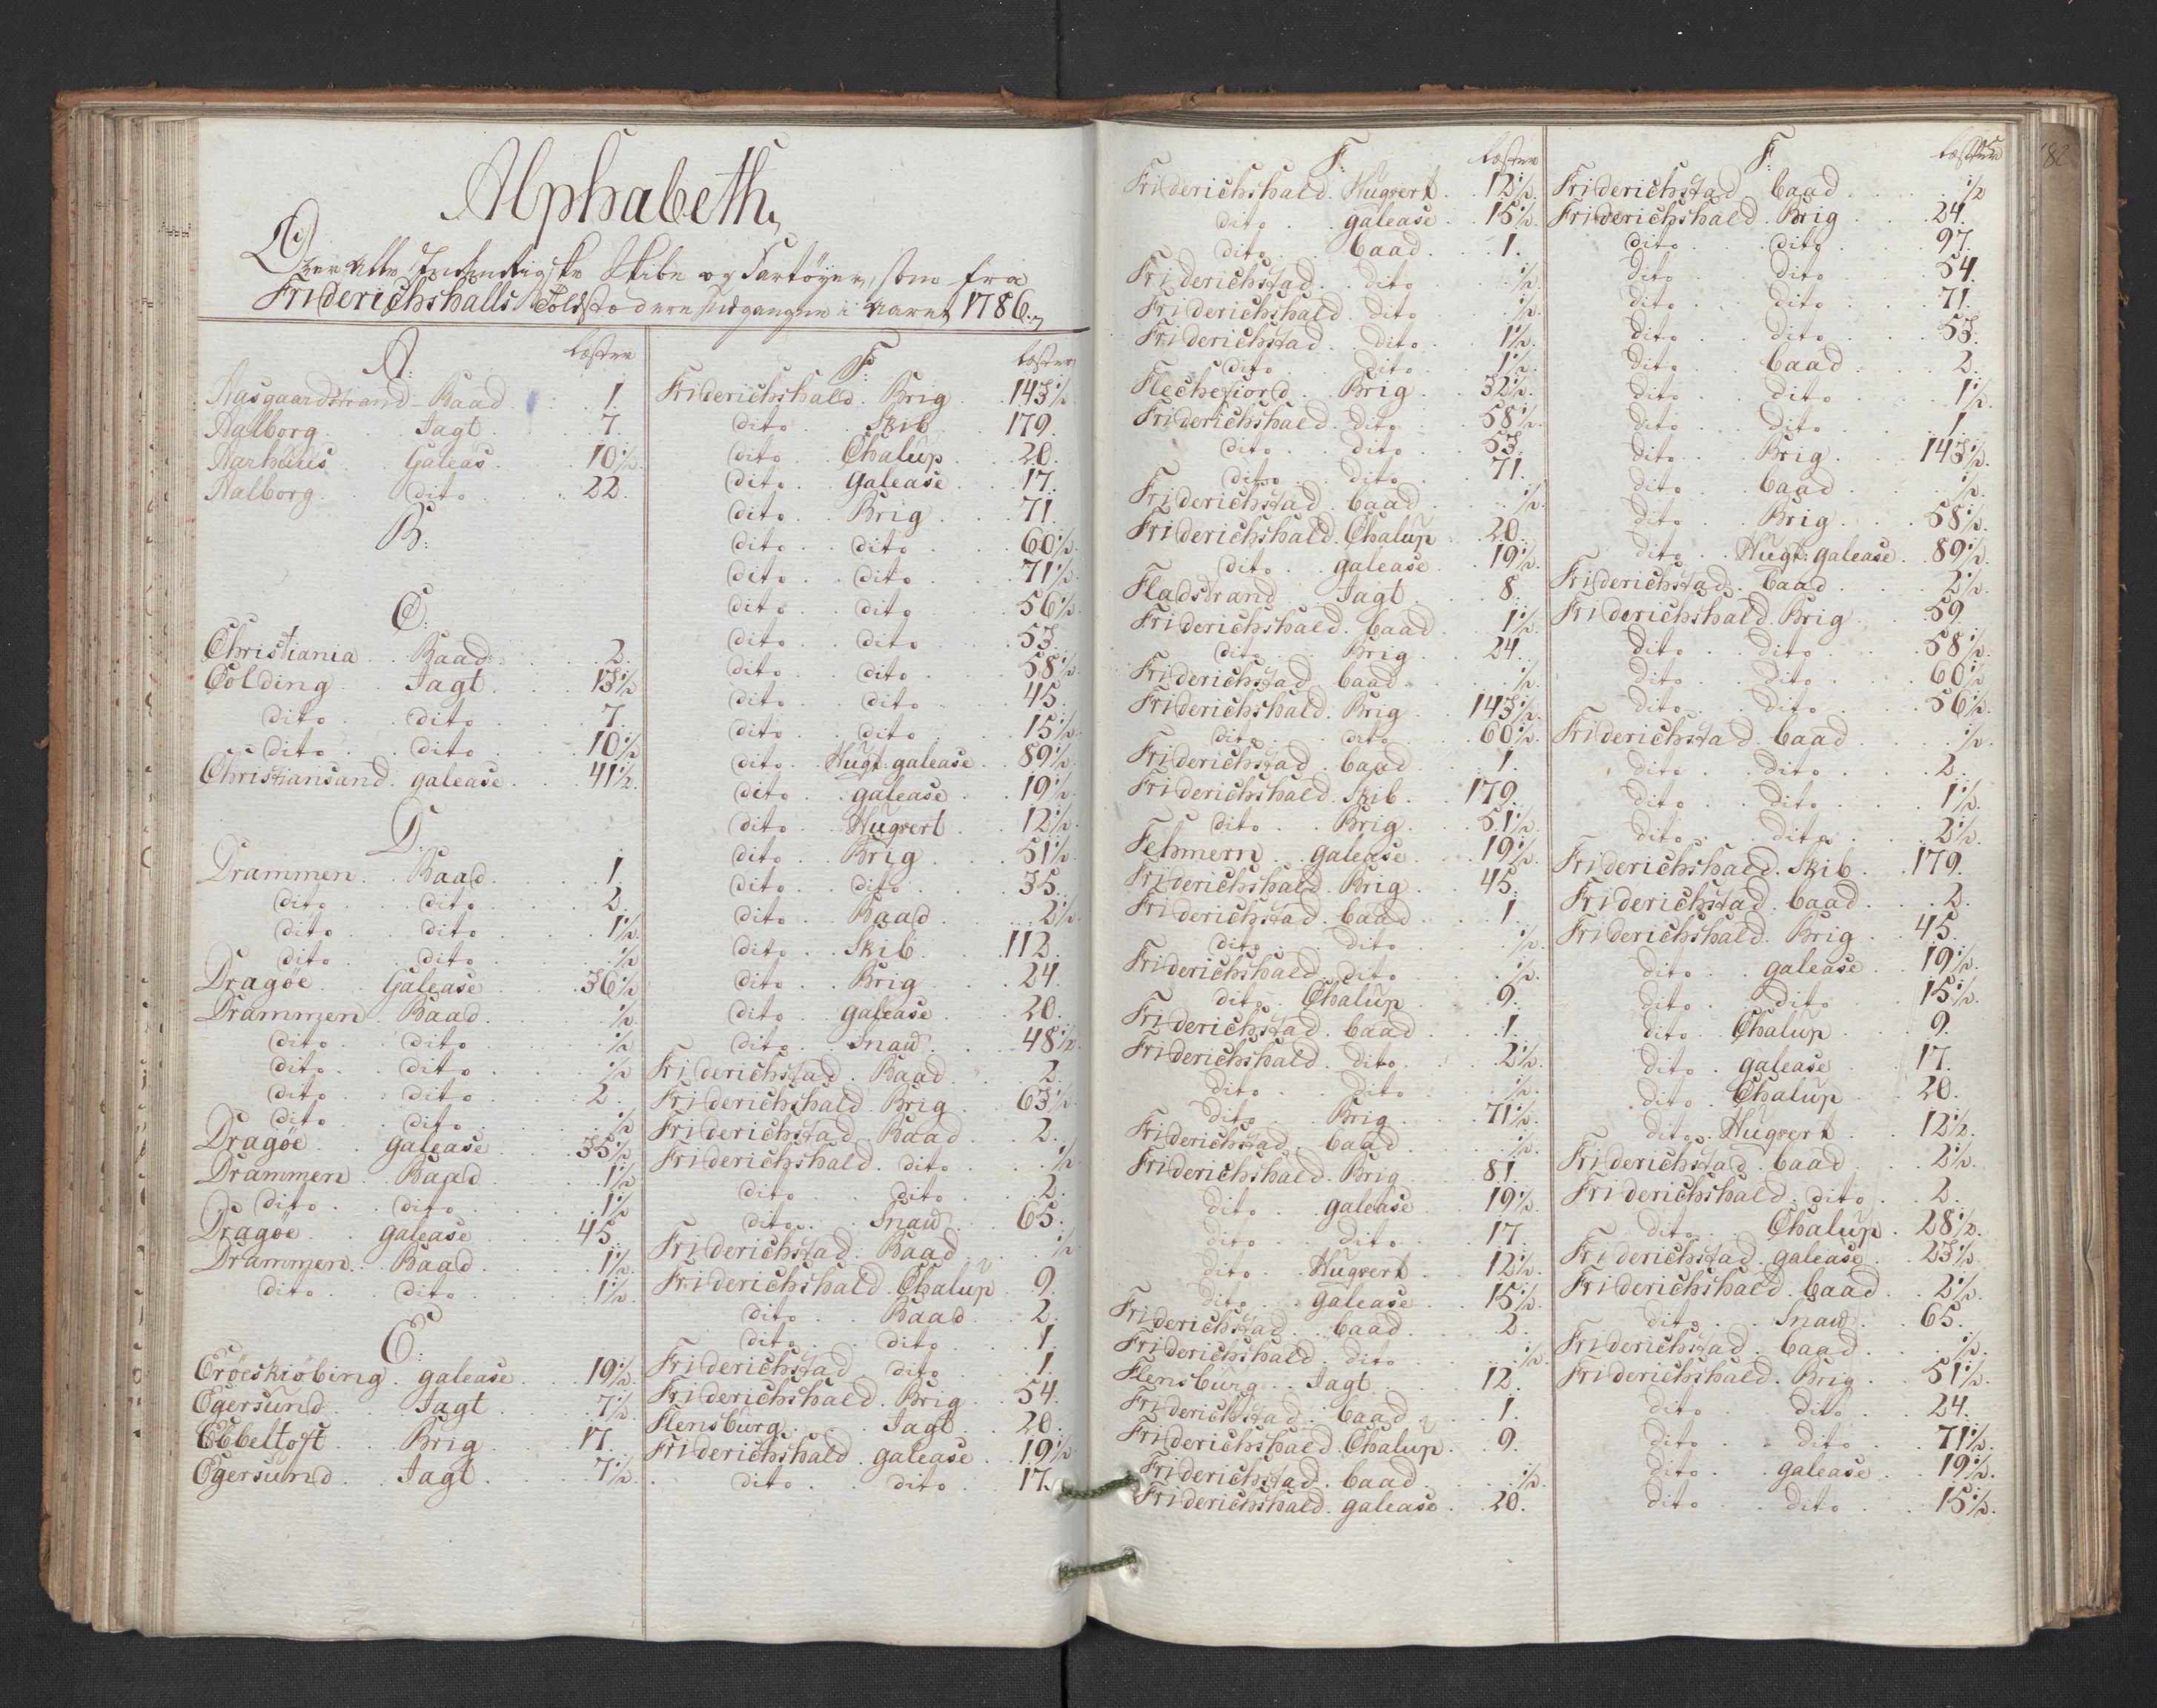 Alphabeth,
Over Alle Indenrigske Skibe og Fartøyer, som fra
Friderichshalls Toldstæd ere udgangne i Aaret 1786.
A: Læster
Aasgaardstrand - Baad . 1.
Aalborg . Jagt . 7.
Aarhuus . Galeas . 10½.
Aalborg . dito . 22.
B:
C:
Christiania . Baad . 2.
Colding . Jagt . 13½
dito . dito . 7.
dito . dito . 10½
Christiansand . galease . 41½.
D:
Drammen . Baad . 1.
dito . dito . 2.
dito . dito . 1½.
dito . dito . ½
Dragöe . Galease . 36½
Drammen . Baad . ½.
dito . dito . ½
dito . dito . ½
dito . dito . 2.
dito . dito . ½
Dragöe . galease . 35½
Drammen . Baad . 1½
dito . dito . 1½
Dragöe . galease . 45.
Drammen . Baad . 1½.
dito . dito . 1½.
E:
Eröeskiöbing . galease . 19½.
Egersund . Jagt . 7½.
Ebbeltoft . Brig . 17.
Egersund . Jagt . 7½.
F: Læster
Friderichshald . Brig . 143½
dito . Skib . 179.
dito . Chalup . 20.
dito . galease . 17.
dito . Brig . 71.
dito . dito . 60½.
dito . dito . 71½.
dito . dito . 56½.
dito . dito . 53.
dito . dito . 58½.
dito . dito . 45.
dito . dito . 15½.
dito . Hugt: galease . 89½.
dito . galease . 19½.
dito . Hugvert . 12½.
dito . Brig . 51½.
dito . dito . 35.
dito . Baad . 2½.
dito . Skib . 112.
dito . Brig . 24.
dito . galease . 20.
dito . Snau . 48½.
Friderichstad . Baad . 2.
Friderichshald . Brig . 63½.
Friderichstad . Baad . 2.
Friderichshald . dito . ½.
dito . dito . 2.
dito . Snau . 65.
Friderichstad . Baad . ½.
Friderichshald . Chalup . 9.
dito . Baad . 2.
dito . dito . 1.
Friderichstad . dito . 1.
Friderichshald . Brig . 54.
Flensburg . Jagt . 20.
Friderichshald . galease . 19½
dito . dito . 17.
F: Læster
Friderichshald . Hugvert . 12½.
dito . galease . 15½.
dito . baad . 1.
Friderichstad . dito . ½.
Friderichshald . dito . ½.
Friderichstad . dito . 1½.
dito . dito . 1½.
Flechefiord . Brig . 32½.
Friderichshald . dito . 58½.
dito . dito . 53.
dito . dito . 71.
Friderichstad . baad . ½.
Friderichshald . Chalup . 20.
dito . galease . 19½.
Fladstrand . Jagt . 8.
Friderichshald . baad . 1½.
dito . Brig . 24.
Friderichstad . baad . ½.
Friderichshald . Brig . 143½.
dito . dito . 60½.
Friderichstad . baad . 1.
Friderichshald . Skib . 179.
dito . Brig . 51½.
Fehmern . galease . 19½.
Friderichshald . Brig . 45.
Friderichstad . baad . 1.
dito . dito . ½.
Friderichshald . dito . ½.
dito . Chalup . 9.
Friderichstad . baad . 1.
Friderichshald . dito . 2½.
dito . dito . ½.
dito . Brig . 71½.
Friderichstad . baad . ½.
Friderichshald . Brig . 81.
dito . galease . 19½.
dito . dito . 17.
dito . Hugvert . 12½.
dito . galease . 15½.
Friderichstad . baad . 2.
Friderichshald . dito . ½.
Flensburg . Jagt . 12.
Friderichstad . baad . 1.
Friderichshald . Chalup . 9.
Friderichstad . baad . ½.
Friderichshald . galease . 20.
F: Læster 82
Friderichstad . baad . ½
Friderichshald . Brig . 24.
dito . dito . 97.
dito . dito . 54.
dito . dito . 71.
dito . dito . 53.
dito . baad . 2.
dito . dito . 1½.
dito . dito . 1.
dito . Brig . 143½.
dito . baad . ½.
dito . Brig . 58½.
dito . Hugt: galease . 89½.
Friderichstad . baad . 2½.
Friderichshald . Brig . 59.
dito . dito . 58½.
dito . dito . 60½
dito . dito . 56½.
Friderichstad . baad . ½.
dito . dito . 2.
dito . dito . 1½.
dito . dito . 2½.
Friderichshald . Skib . 179.
Friderichstad . baad . 2.
Friderichshald . Brig . 45.
dito . galease . 19½.
dito . dito . 15½.
dito . Chalup . 9.
dito . galease . 17.
dito . Chalup . 20.
dito . Hugvert . 12½.
Friderichstad . baad . 2½.
Friderichshald . dito . 2.
dito . Chalup . 28½.
Friderichstad . galease . 23½.
Friderichshald . baad . 2½.
dito . Snau . 65.
Friderichstad . baad . ½.
Friderichshald . Brig . 51½.
dito . dito . 24.
dito . dito . 71½.
dito . galease . 19½.
dito . dito . 15½.